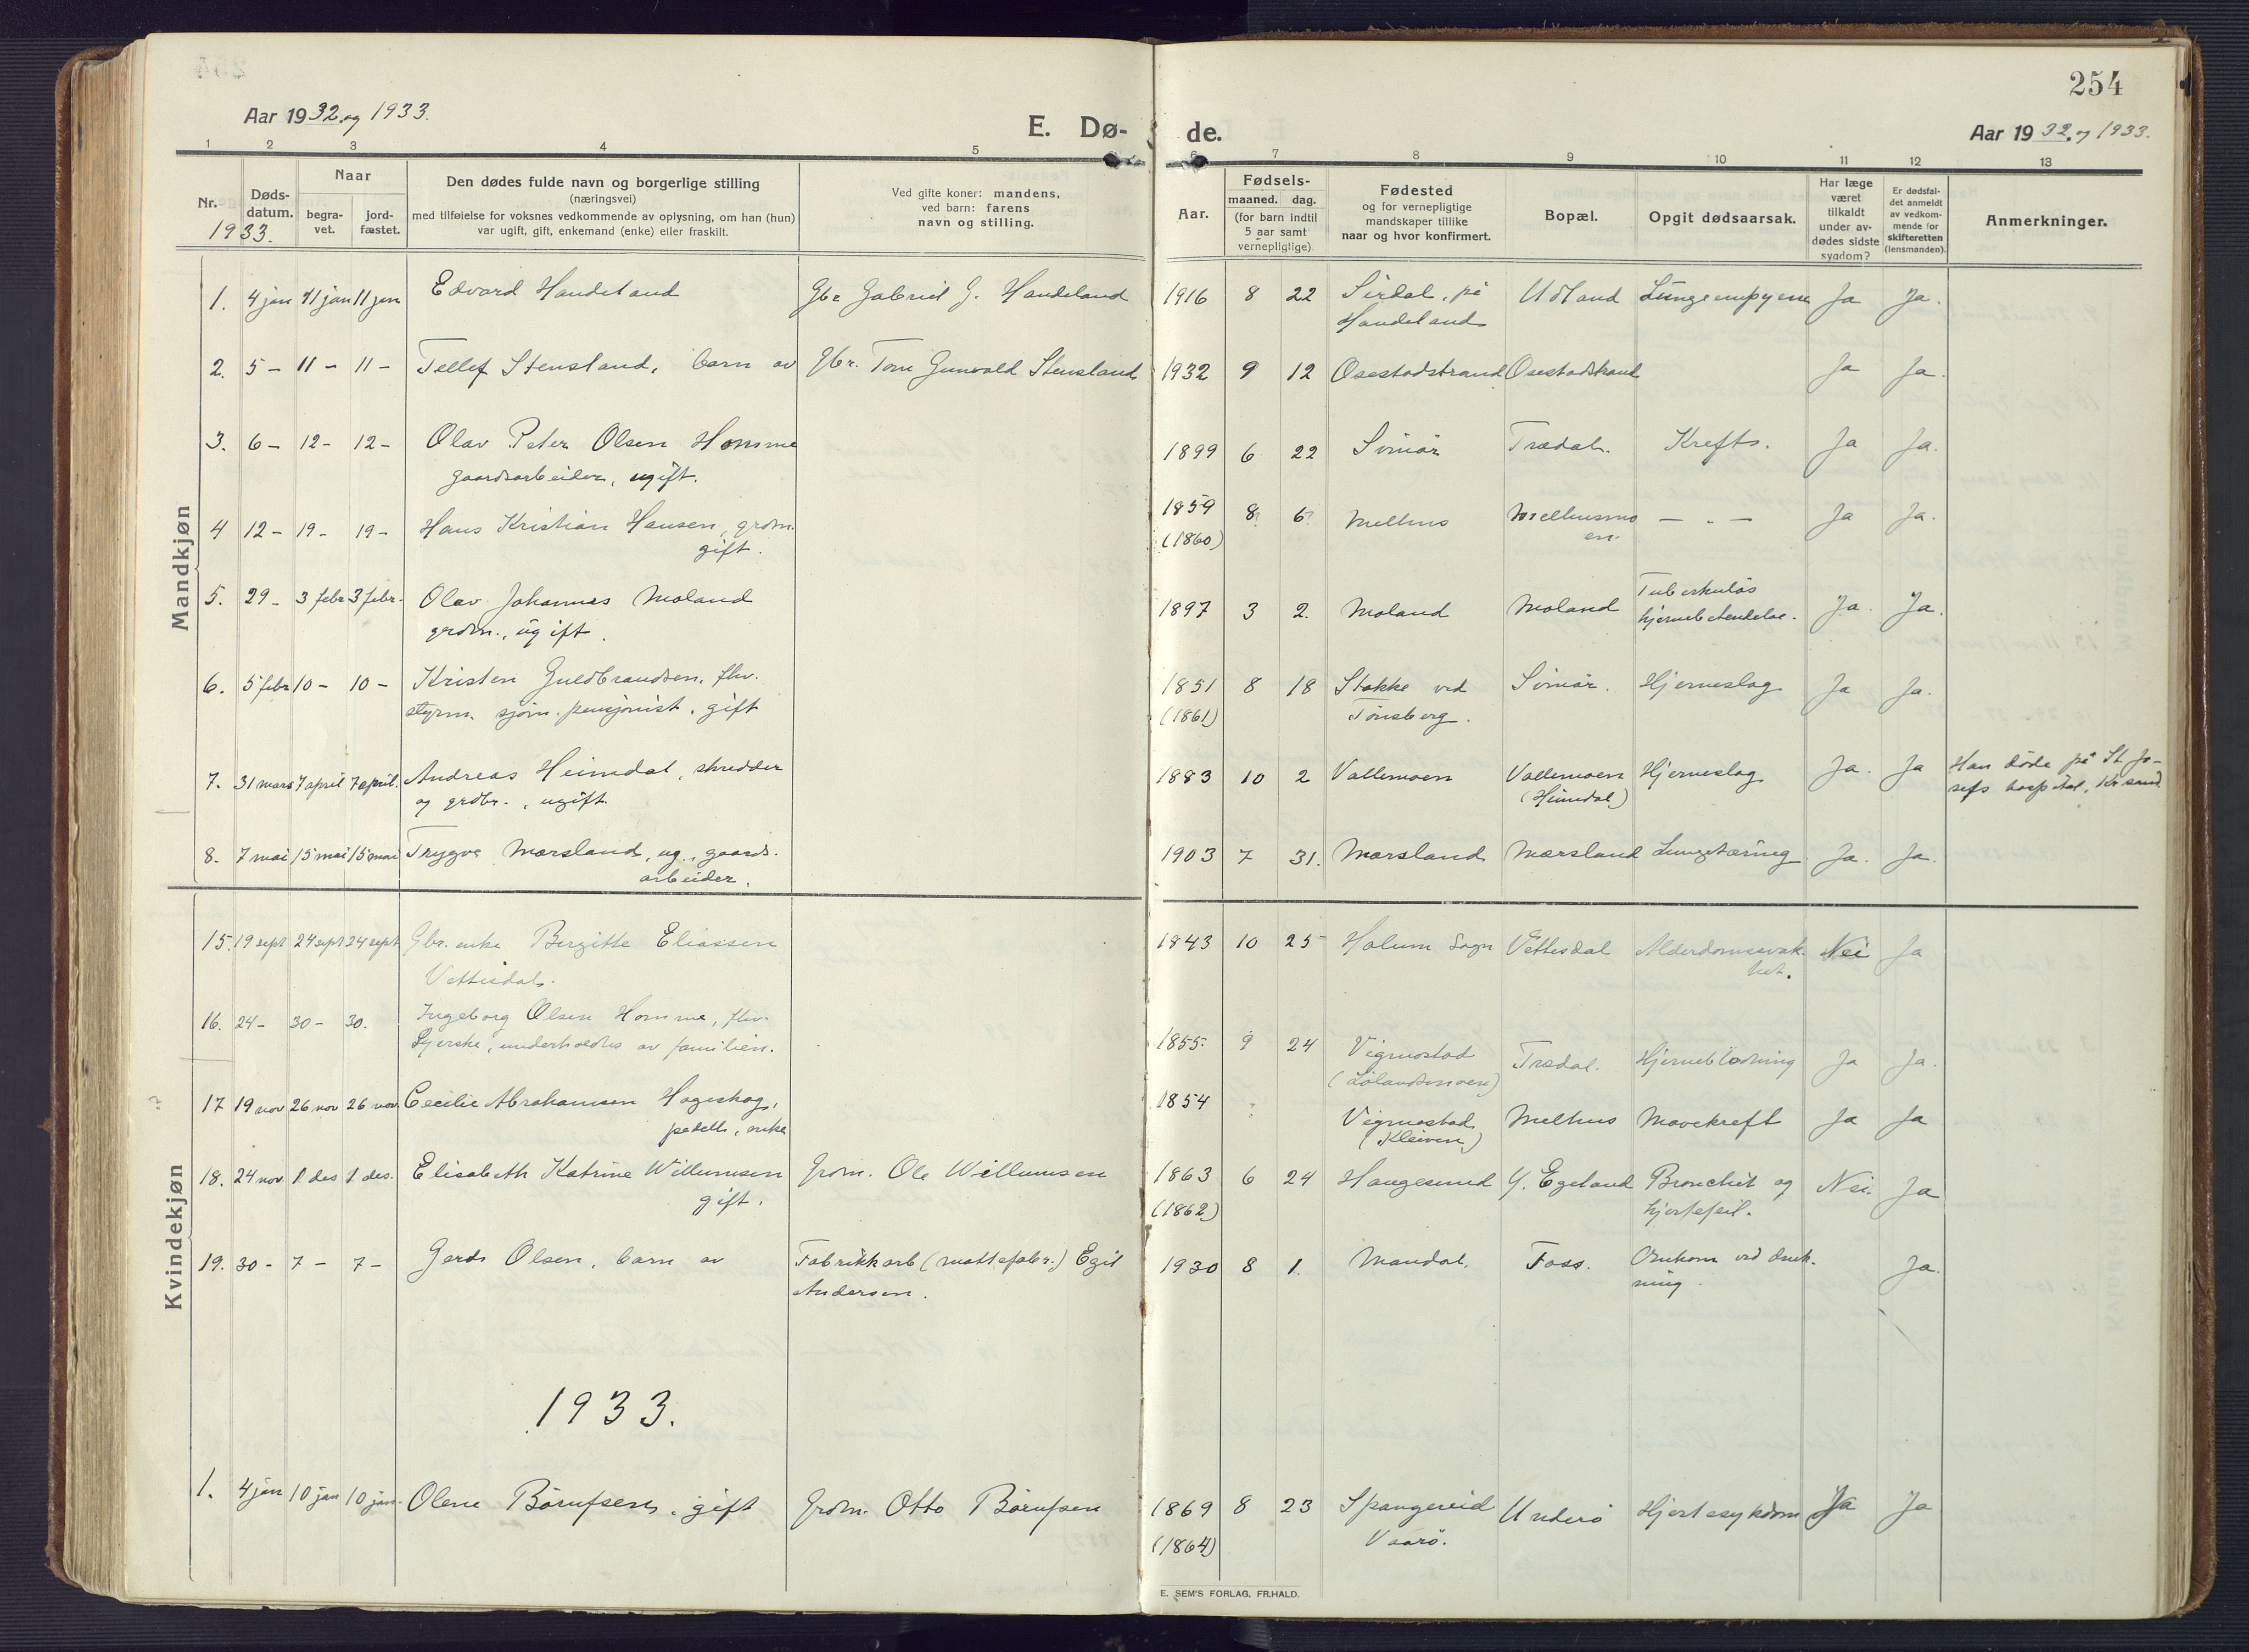 254
Aar 1932 og 1933.
E. Dø- de.
Aar 1932 og 1933.
1 2 3 4 5 6 7 8 9 10 11 12 13
Nr. Døds-datum. Naar begra-vet. jord-fæstet.
Den dødes fulde navn og borgerlige stilling
(næringsvei)
med tilføielse for voksnes vedkommende av oplysning, om han (hun)
var ugift, gift, enkemand (enke) eller fraskilt.
Ved gifte koner: mandens,
ved barn: farens
navn og stilling.
Aar. Fødsels- maaned. dag.
(for barn indtil
5 aar samt
vernepligtige)
Fødested
og for vernepligtige
mandskaper tillike
naar og hvor konfirmert.
Bopæl.
Opgit dødsaarsak.
Har læge
været
tilkaldt
under av-
dødes sidste
sygdom?
Er dødsfal-
det anmeldt
av vedkom-
mende for
skifteretten
(lensmanden).
Anmerkninger.
1933.
Mandkjøn
1. 4 jan 11 jan 11 jan Edvard Handeland Gbr Gabriel G. Handeland 1916 8 22 Sirdal, på Udland Lungeempyem Ja Ja.
Handeland
2. 5 - 11 - 11 - Tellef Stensland, barn av Gbr. Tom Gunvald Stensland 1932 9 12 Osestadstrand Osestadstrand Ja Ja.
3. 6 - 12 - 12 - Olav Peter Olsen Homme 1899 6 22 Svinør Trædal. Krefts. Ja Ja.
gaardsarbeider, ugift.
4 12 - 19 - 19 - Hans Kristian Hansen, grdm. 1859 8? 6? Melhus Melhusmo - " - Ja Ja.
gift. (1860) en.
5. 29 - 3 febr 3 febr. Olav Johannes Moland 1897 3 2. Moland Moland Tuberkuløs Ja. Ja.
grdm., ugift. hjernebetendelse.
6. 5 febr 10 - 10 - Kristen Guldbrandsen, fhv. 1851 8 18 Stokke ved Svinør. Hjerneslag Ja Ja.
styrm. sjøm. pensjonist, gift (1861) Tønsberg.
7. 31 mars 7 april 7 april. Andreas Heimdal, skredder 1883 10 2 Vallemoen Vallemoen Hjerneslag Ja. Ja Han døde på St. Jo-
og grdbr., ugift. (Heimdal) sefs hospital, Kr.sand
8. 7 mai 15 mai 15 mai Trygve Marsland, ug., gaards- 1903 7 31. Marsland Marsland Lungetæring Ja. Ja.
arbeider.
Kvindekjøn
15. 19 sept 24 sept 24 sept Gbr. enke Bergitte Eliassen 1843 10 25 Holum Sogn Vettesdal Alderdomssvak- Nei Ja
Vettesdal. het.
16. 24 - 30 - 30. Ingeborg Olsen Homme, fhv. 1855. 9 24 Vigmostad Trædal. Hjerneblødning Ja Ja.
Syerske, underholdtes av familien. (Lølandsmoen)
17 19 nov 26 nov 26 nov. Cecilie Abrahamsen Hageskog, 1854 ? Vigmostad Melhus Mavekreft Ja Ja
enke (Kleiven)
18. 24 nov 1 des 1 des. Elisabeth Katrine Willumsen Grdm. Ole Willumsen 1863 6 24 Haugesund Y. Egeland Bronchit og Nei. Ja
gift. (1862) hjertefeil.
19. 30 - 7 - 7 - Gerd Olsen, barn av Fabrikkarb (mattefabr.) Egil 1930 8 1. Mandal. Foss. Omkom ved druk- Ja.
Andersen. ning.
1933.
1. 4 jan 10 jan 10 jan. Olene Børufsen, gift Grdm. Otto Børufsen 1869 8 23 Spangereid Underø Hjertesykdom Ja Ja
(1864) Vaarø.
E. SEM'S FORLAG, FR.HALD.